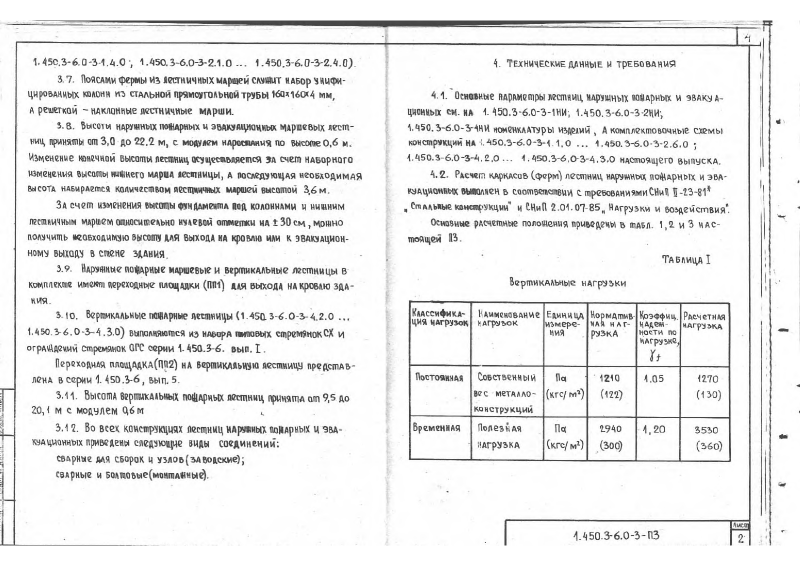 1.450.3-6.0-3-1.4.0; 1.450.3-6.0-3-2.1.0 ... 1.450.3-6.0-3-2.4.0).
3.7. Поясами фермы из лестничных маршей служит набор унифи-
цированных колонн из стальной прямоугольной трубы 160×160×4 мм,
а решеткой - наклонные лестничные марши.
3.8. Высоты наружных пожарных и эвакуационных маршевых лест-
ниц приняты от 3,0 до 22,2 м, с модулем нарастания по высоте 0,6 м.
Изменение конечной высоты лестниц осуществляется за счет наборного
изменения высоты нижнего марша лестницы, а последующая необходимая
высота набирается количеством лестничных маршей высотой 3,6 м.
За счет изменения высоты фундамента под колоннами и нижним
лестничным маршем относительно нулевой отметки на ±30 см, можно
получить необходимую высоту для выхода на кровлю или к эвакуацион-
ному выходу в стене здания.
3.9. Наружные пожарные маршевые и вертикальные лестницы в
комплекте имеют переходные площадки (ПП1) для выхода на кровлю зда-
ния.
3.10. Вертикальные пожарные лестницы (1.450.3-6.0-3-4.2.0 ...
1.450.3-6.0-3-4.3.0) выполняются из набора типовых стремянок СХ и
ограждений стремянок ОГС серии 1.450.3-6. вып. I.
Переходная площадка (ПП2) на вертикальную лестницу представ-
лена в серии 1.450.3-6, вып. 5.
3.11. Высота вертикальных пожарных лестниц принята от 9,5 до
20,1 м с модулем 0,6 м
3.12. Во всех конструкциях лестниц наружных пожарных и эва-
куационных приведены следующие виды соединений:
сварные для сборок и узлов (заводские);
сварные и болтовые (монтажные).
4
4. Технические данные и требования
4.1. Основные параметры лестниц наружных пожарных и эвакуа-
ционных см. на 1.450.3-6.0-3-1НИ; 1.450.3-6.0-3-2НИ;
1.450.3-6.0-3-4НИ номенклатуры изделий, а комплектовочные схемы
конструкций на 1.450.3-6.0-3-1.1.0 ... 1.450.3-6.0-3-2.6.0;
1.450.3-6.0-3-4.2.0... 1.450.3-6.0-3-4.3.0 настоящего выпуска.
4.2. Расчет каркасов (ферм) лестниц наружных пожарных и эва-
куационных выполнен в соответствии с требованиями СНиП II-23-81*
„Стальные конструкции" и СНиП 2.01.07-85 „Нагрузки и воздействия".
Основные расчетные положения приведены в табл. 1, 2 и 3 нас-
тоящей ПЗ.
Таблица I
Вертикальные нагрузки
Классифика- Наименование Единица Норматив- Коэффиц. Расчетная
ция нагрузок нагрузок измере- ная наг- надеж- нагрузка
ния рузка ности по
нагрузке,
γf
Постоянная Собственный Па 1210 1.05 1270
вес металло- (кгс/м²) (122) (130)
конструкций
Временная Полезная Па 2940 1,20 3530
нагрузка (кгс/м²) (300) (360)
1.450.3-6.0-3-ПЗ
Лист
2